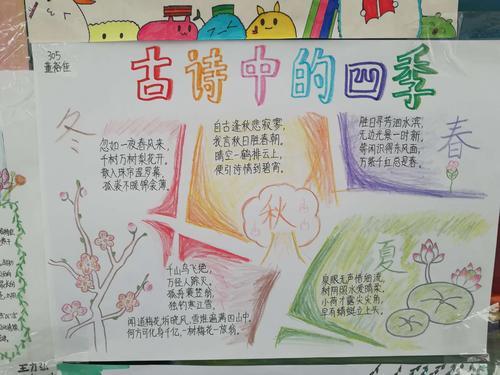 305
古诗中的四季
冬
忽如一夜春风来，
千树万树梨花开。
散入珠帘湿罗幕，
狐裘不暖锦衾薄。
自古逢秋悲寂寥，
我言秋日胜春朝。
晴空一鹤排云上，
便引诗情到碧霄。
胜日寻芳泗水滨，
无边光景一时新。
等闲识得东风面，
万紫千红总是春。
春
秋
千山鸟飞绝，
万径人踪灭。
孤舟蓑笠翁，
独钓寒江雪。
闻道梅花坼晓风，雪堆遍满四山中。
何方可化身千亿，一树梅花一放翁。
夏
泉眼无声惜细流，
树阴照水爱晴柔。
小荷才露尖尖角，
早有蜻蜓立上头。